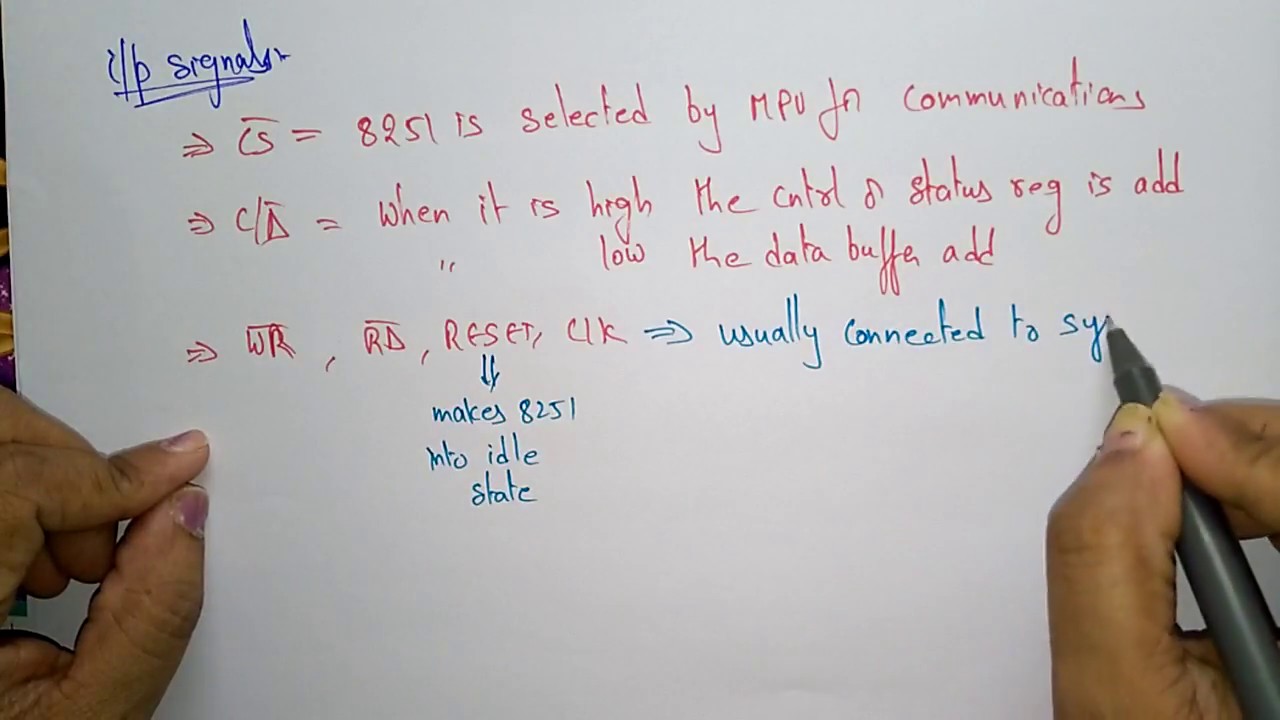 i/p signals
⇒ C̅S̅ = 8251 is selected by MPU for communications
⇒ C/D̅ = when it is high the cntrl & status reg is add
" low the data buffer add
⇒ W̅R̅, R̅D̅, RESET, Clk ⇒ usually connected to sy
⇓
makes 8251
into idle
state